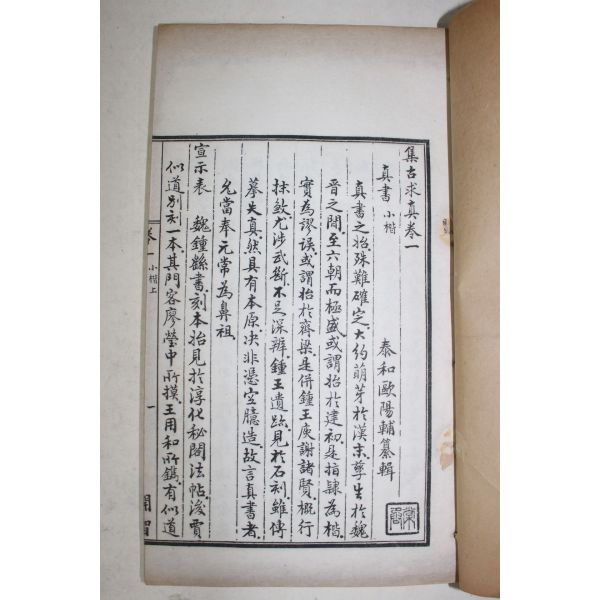 集古求真卷一
泰和歐陽輔纂輯
真書 小楷
真書之始殊難確定大約萌芽於漢末孳生於魏
晉之間至六朝而極盛或謂始於建初是指隸為楷
實為謬誤或謂始於齊梁是併鍾王庾謝諸賢概行
抹斂尤涉武斷不足深辨鍾王遺跡見於石刻雖傳
摹失真然具有本原决非憑空臆造故言真書者
允當奉元常為鼻祖
宣示表 魏鍾繇書刻本始見於淳化秘閣法帖後賈
似道别刻一本其門客廖瑩中所摸王用和所鐫有似道
卷一 小楷上
一
開智